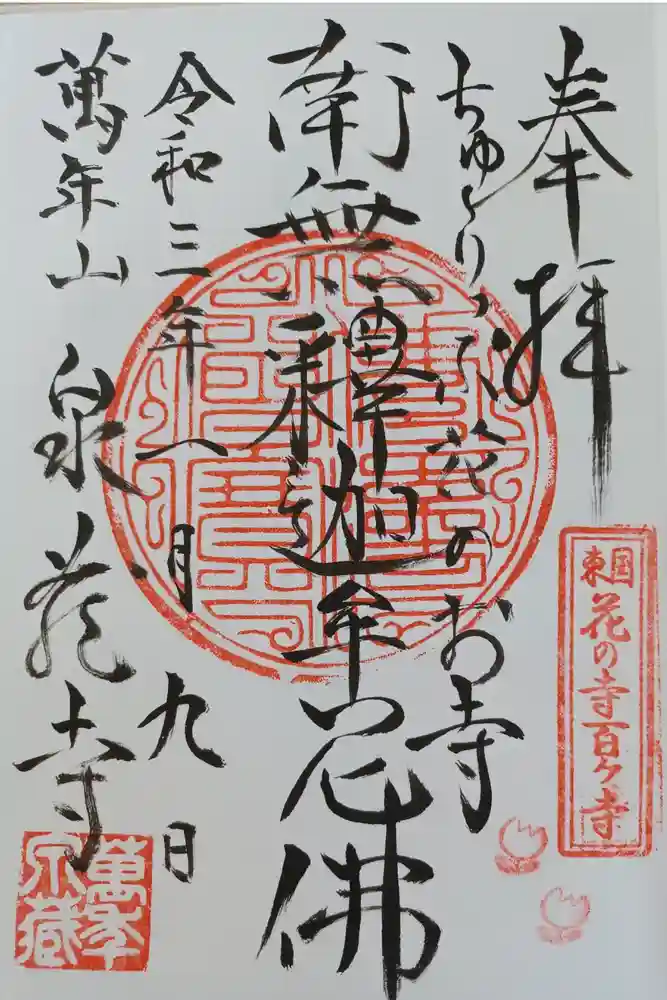 奉拝
東国花の寺百ヶ寺
ちゅうりっぷ花のお寺
南無釋迦牟尼佛
令和三年一月九日
萬年山 泉蔵寺